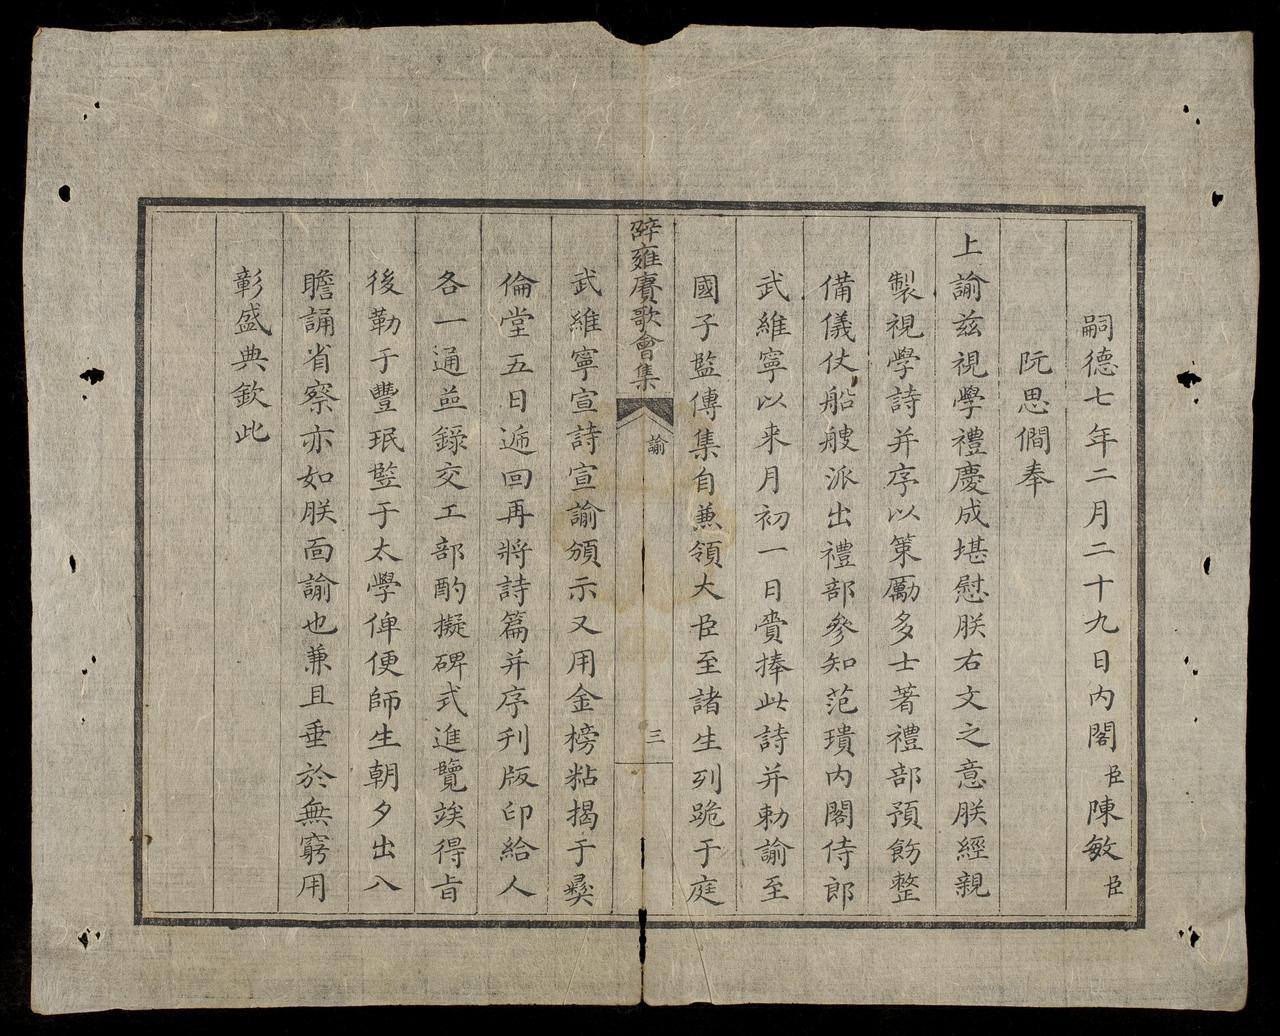 嗣德七年二月二十九日内閣臣陳敏臣
阮思僩奉
上諭兹視學禮慶成堪慰朕右文之意朕經親
製視學詩并序以策勵多士著禮部預飭整
備儀仗船艘派出禮部參知范璝内閣侍郎
武維寧以来月初一日賫捧此詩并勅諭至
國子監傳集自兼領大臣至諸生列跪于庭
辟雍賡歌會集
諭
三
武維寧宣詩宣諭頒示又用金榜粘揭于彛
倫堂五日遞回再將詩篇并序刊版印給人
各一通並錄交工部酌擬碑式進覽竢得㫖
後勒于豐珉豎于太學俾便師生朝夕出入
瞻誦省察亦如朕面諭也兼且垂於無窮用
彰盛典欽此